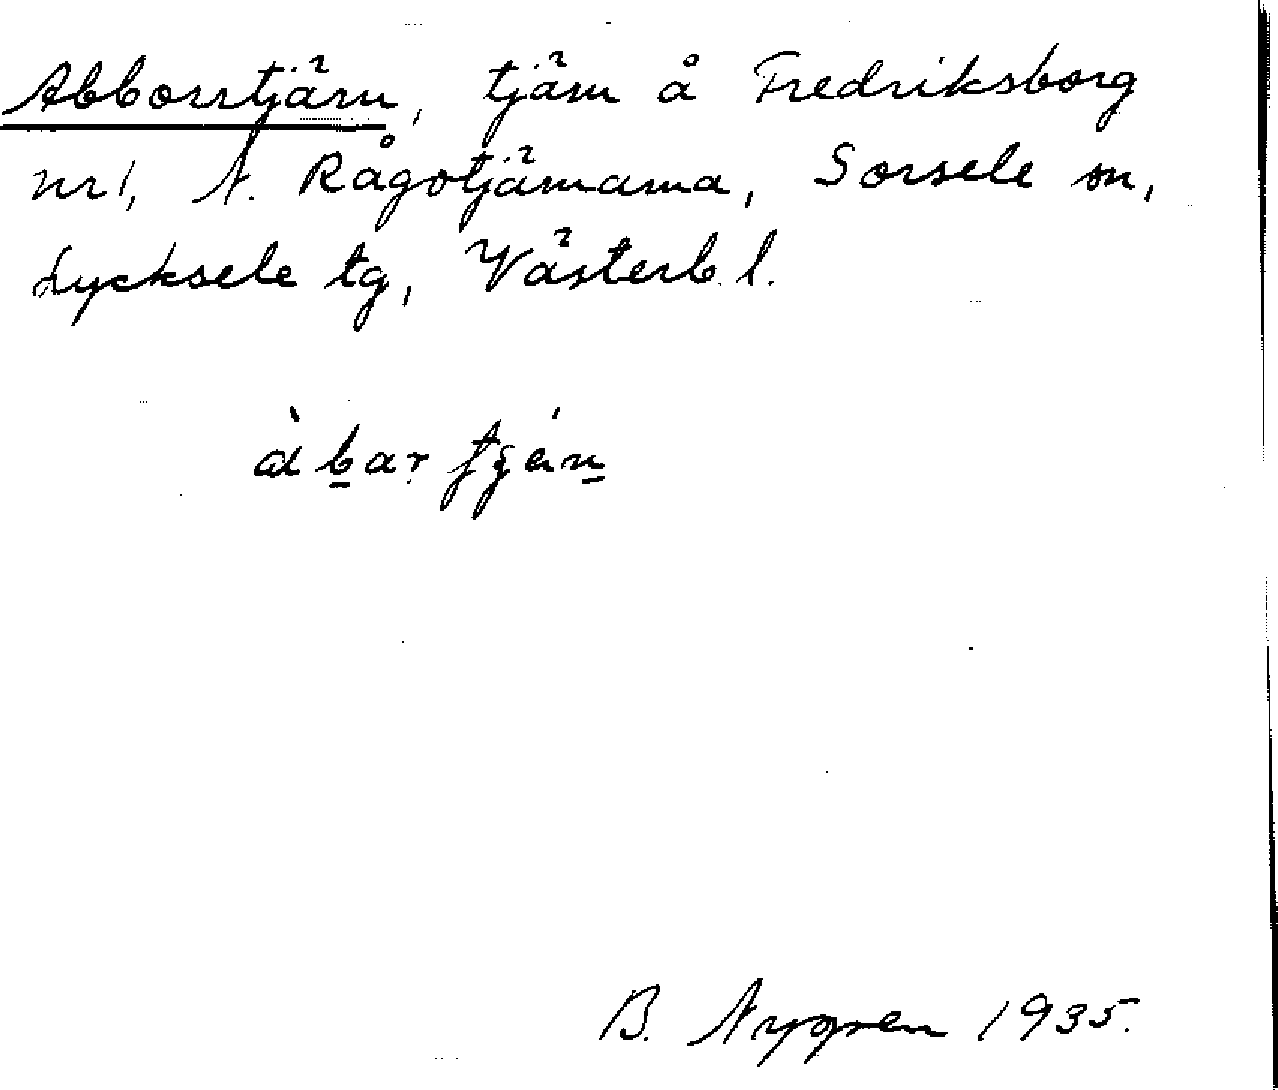 Abborrtjärn, tjärn å Fredriksborg
nr 1, N. Rågotjärnarna, Sorsele sn,
Lycksele tg, Västerb. l.
àbar tján
B. Nygren 1935.